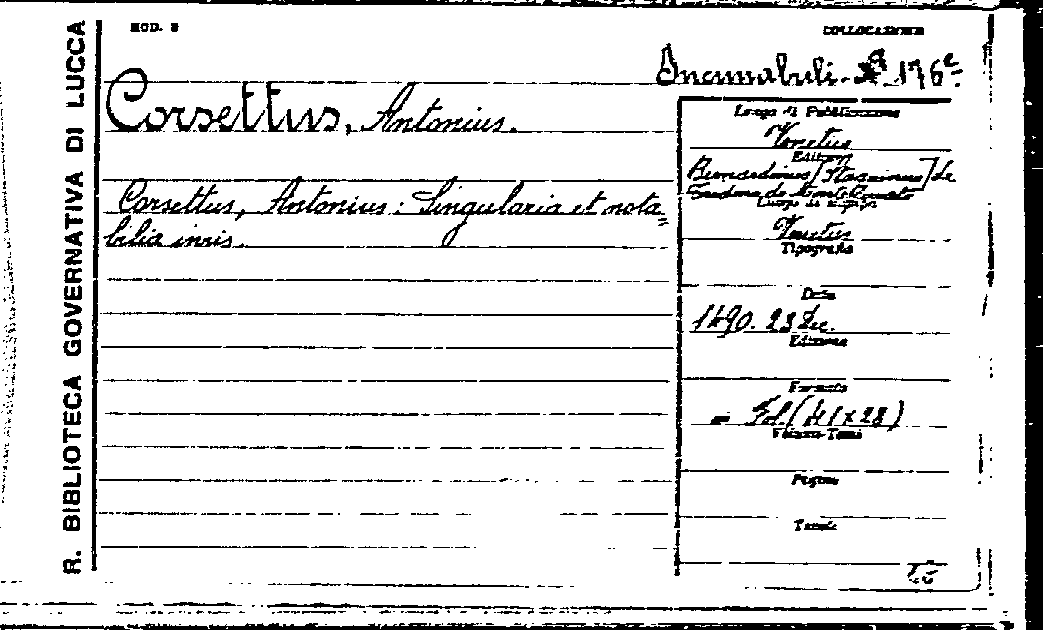 R. BIBLIOTECA GOVERNATIVA DI LUCCA
MOD. 8
COLLOCAZIONE
Incunabuli. Nº 176
Corsettus, Antonius.
Corsettus, Antonius: Singularia et nota=
bilia iuris.
Luogo di Pubblicazione
Venetus
Editore
Luogo di stampa
Venetus
Tipografia
Data
1490. 23 Dec.
Edizione
Formato
= Fol. (41x28)
Volume-Tomi
Pagine
Tavole